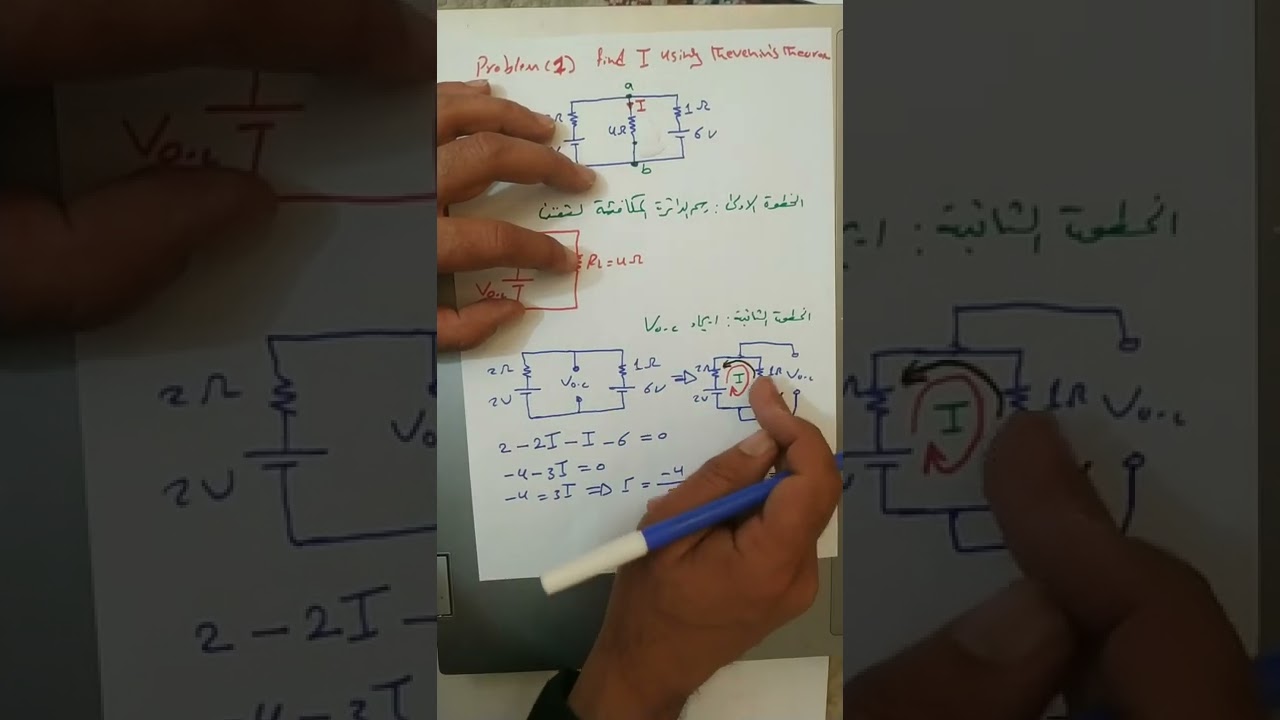 Problem(1) find I using Thevenin's Theorem
a
I
1Ω
4Ω
6V
b
الخطوة الاولى : رسم الدائرة المكافئة لثفنن
RL=4Ω
Vo.c
الخطوة الثانية : ايجاد Vo.c
2Ω
Vo.c
1Ω
2V
6V
⇒
2Ω
I
1Ω
Vo.c
2V
2-2I-I-6=0
-4-3I=0
-4=3I ⇒ I = -4